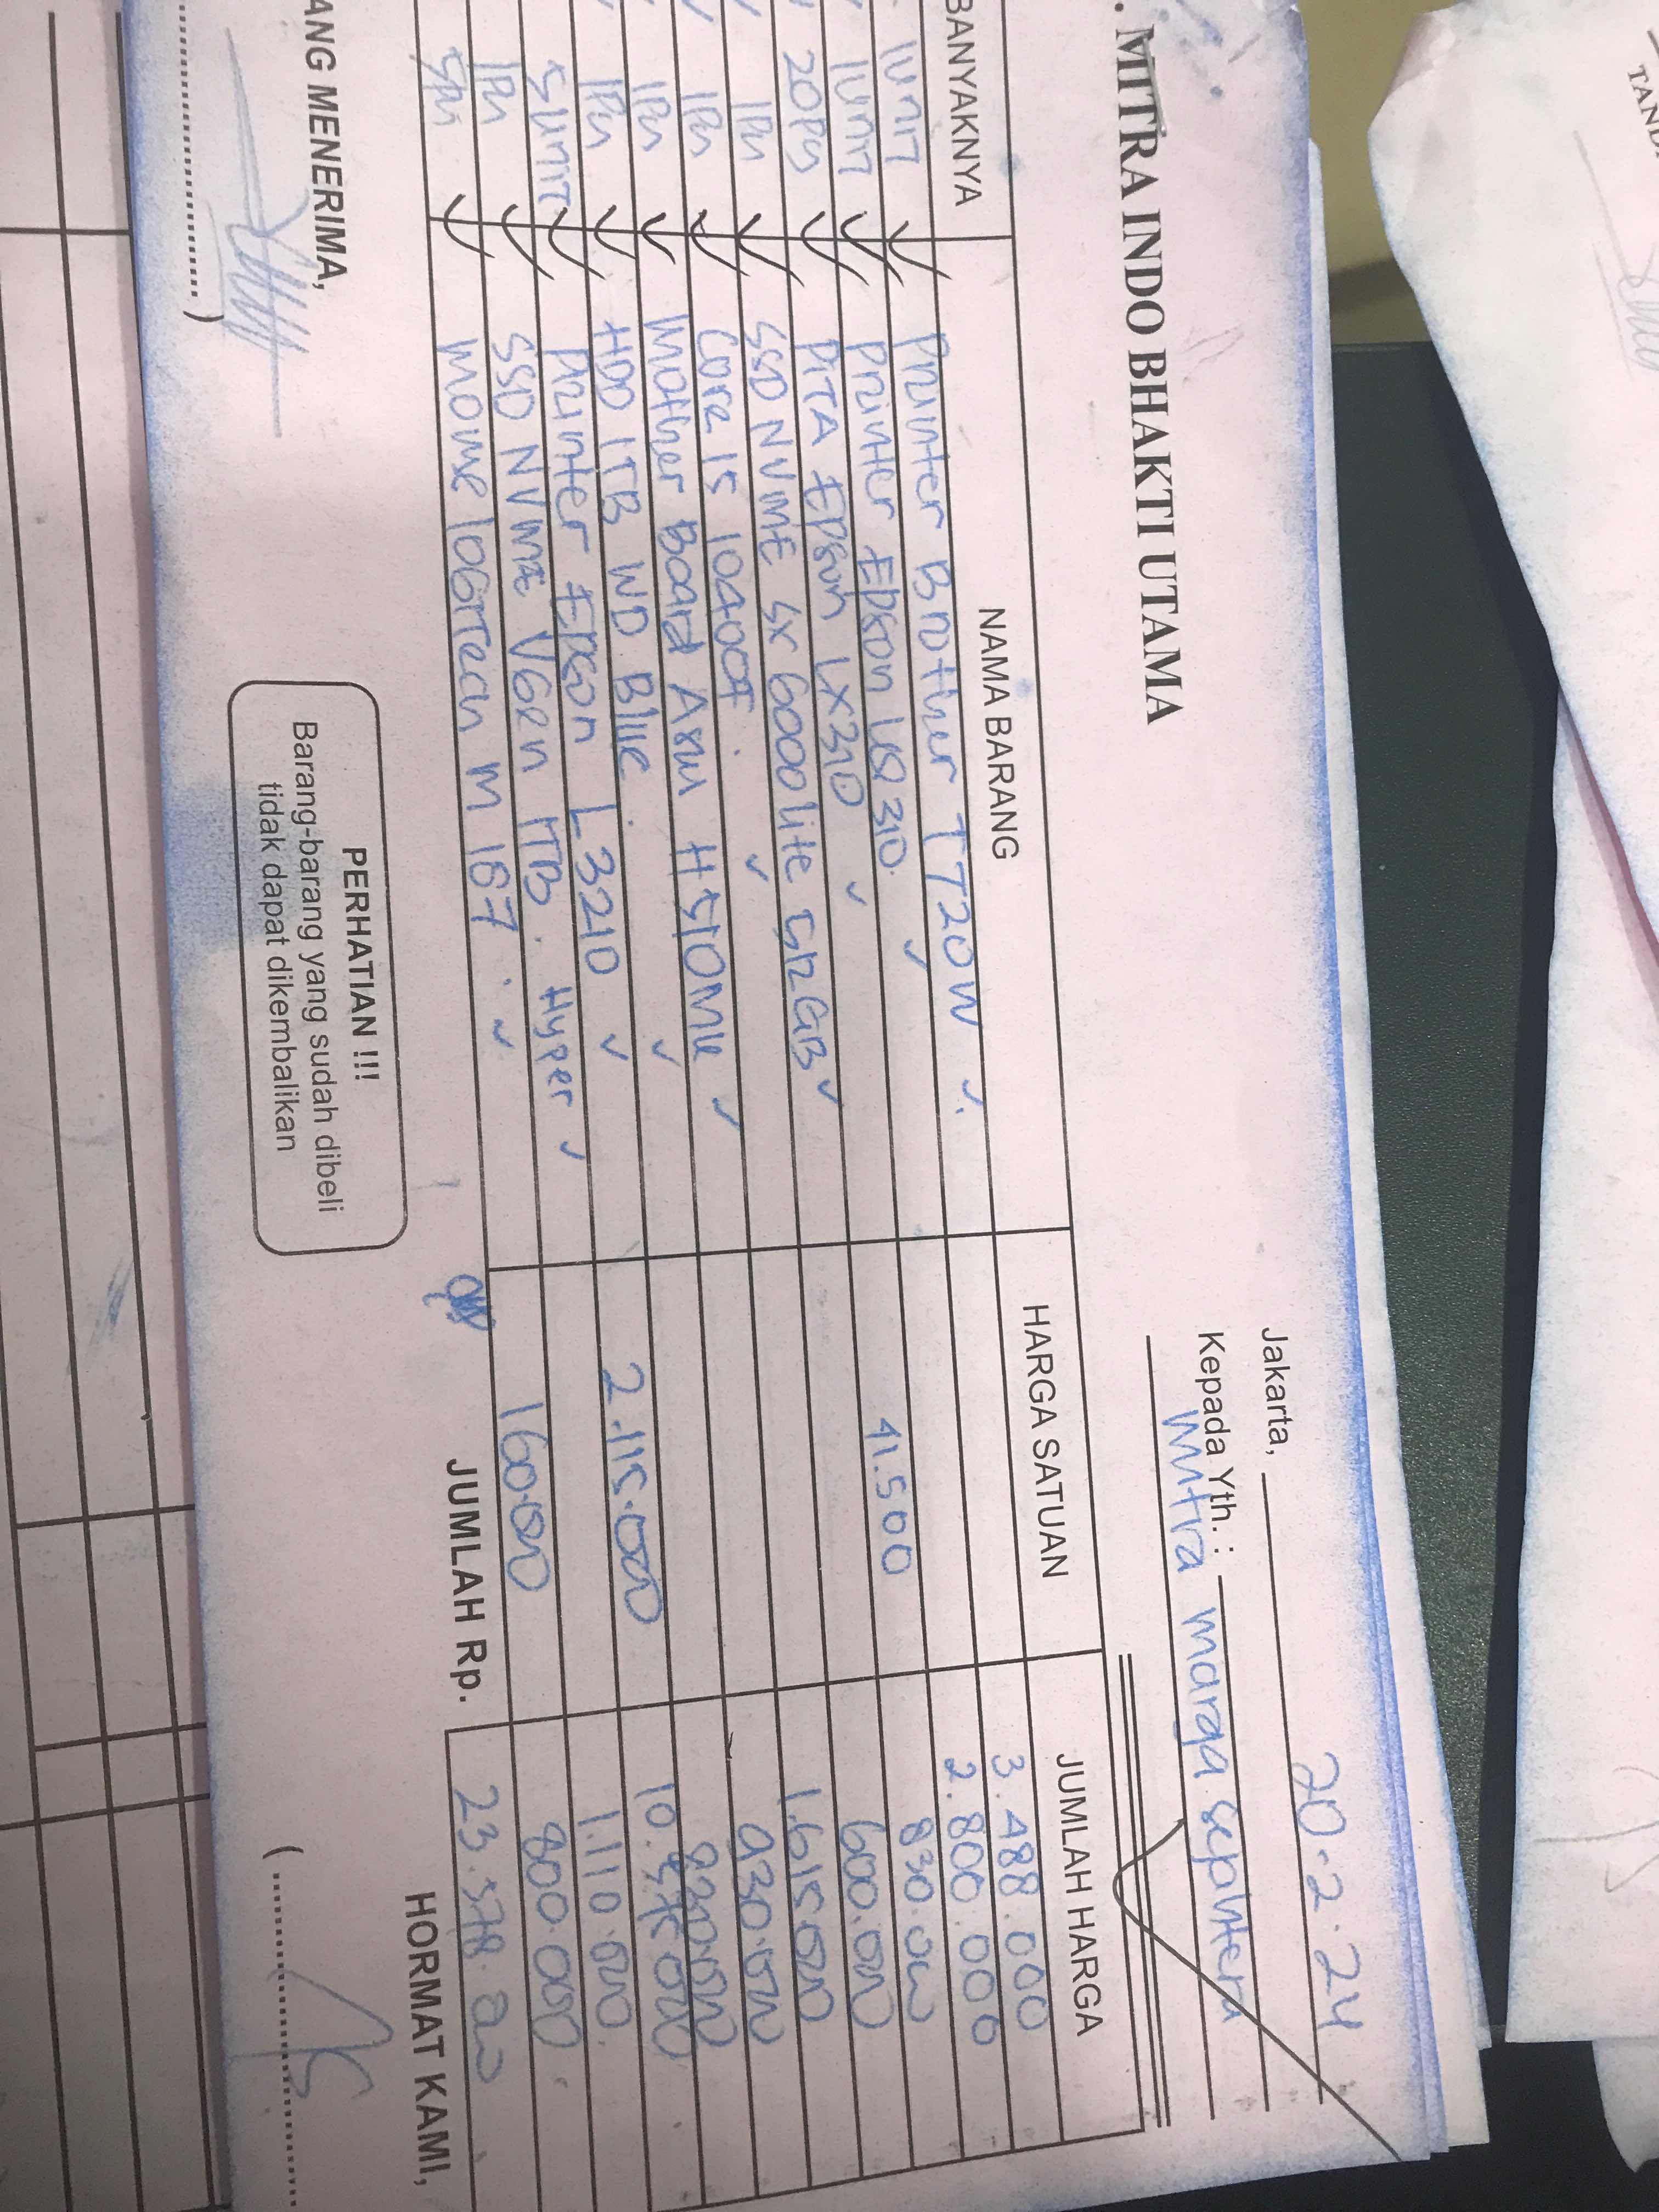 . MITRA INDO BHAKTI UTAMA
Jakarta, 20.2.24
Kepada Yth. :
Mitra marga sephtera
BANYAKNYA NAMA BARANG HARGA SATUAN JUMLAH HARGA
1 unit Printer Brother T720W 3.488.000
1 unit Printer Epson LQ 310 2.800.000
20 Pcs PITA Epson LX310 41.500 830.000
1 Pcs SSD NVME SX 6000 lite 512GB 600.000
1 Pcs Core i5 10400F 1.615.000
1 Pcs Mother Board Asus H510M 930.000
1 Pcs HDD 1TB WD Blue
5 unit Printer Epson L3210 2.115.000 10.575.000
1 Pcs SSD NVME VGen 1TB Hyper 1.110.000
5 Pcs Mouse LOGITech M 187 160.000 800.000
JUMLAH Rp. 23.578.000
ANG MENERIMA,
PERHATIAN !!!
Barang-barang yang sudah dibeli
tidak dapat dikembalikan
HORMAT KAMI,